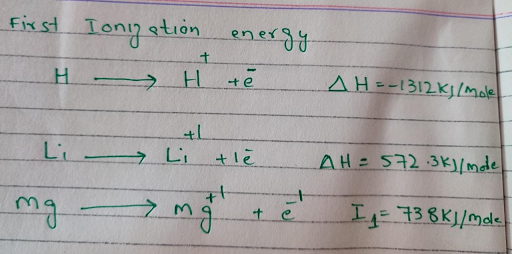 First Ionization energy
H ⟶ H⁺ + ē ΔH = -1312 KJ/mole
Li ⟶ Li⁺¹ + 1ē ΔH = 572.3KJ/mole
mg ⟶ mg⁺¹ + ē¹ I₁ = 738KJ/mole